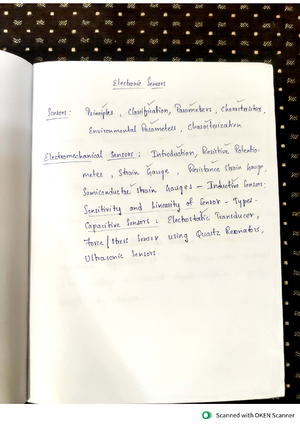 Electronic Sensors
Sensors: Principles, Classification, Parameters, Characteristics,
Environmental Parameters, Characterization
Electromechanical Sensors: Introduction, Resistive Potentio-
meter, Strain Gauge, Resistance Strain Gauge,
Semiconductor Strain Gauges - Inductive Sensors:
Sensitivity and Linearity of Sensor - Types-
Capacitive Sensors: Electrostatic Transducer,
Force/stress Sensor using Quartz Resonators,
Ultrasonic Sensors.
Scanned with OKEN Scanner